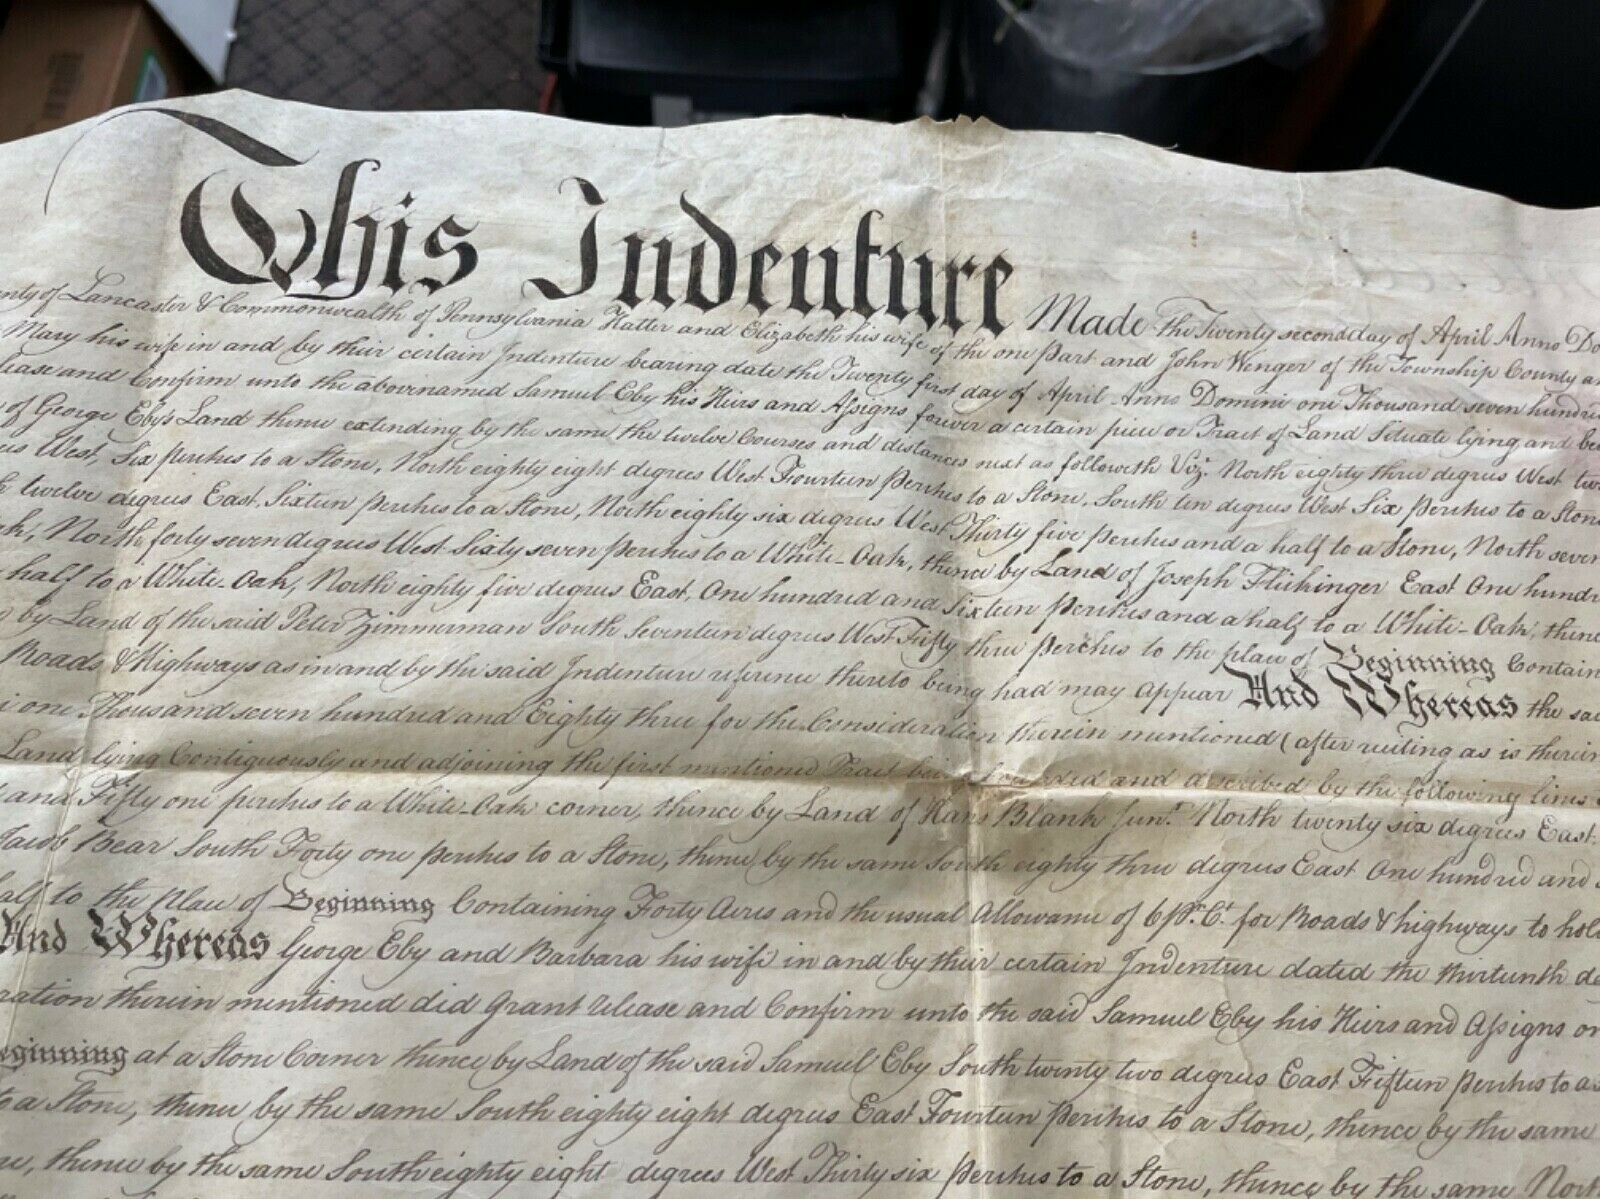 This Indenture Made the Twenty second day of April Anno Do
nty of Lancaster & Commonwealth of Pennsylvania Hatter and Elizabeth his wife of the one part and John Wenger of the Township County an
Mary his wife in and by their certain Indenture bearing date the Twenty first day of April Anno Domini one Thousand seven hundred
lease and Confirm unto the abovenamed Samuel Eby his Heirs and Assigns forever a certain piece or Tract of Land Situate lying and be
of George Eby's Land thence extending by the same the twelve Courses and distances next as followeth Viz. North eighty three degrees West tw
es West, Six perches to a Stone, North eighty eight degrees West Fourteen Perches to a Stone, South ten degrees West Six Perches to a Stone
h twelve degrees East, Sixteen perches to a Stone, North eighty six degrees West Thirty five perches and a half to a Stone, North seven
ak, North forty seven degrees West Sixty seven perches to a White-Oak, thence by Land of Joseph Flickinger East One hundre
half to a White-Oak, North eighty five degrees East, One hundred and Sixteen perches and a half to a White-Oak, thence
by Land of the said Peter Zimmerman South Seventeen degrees West Fifty three perches to the place of Beginning Contain
Roads & Highways as in and by the said Indenture reference thereto being had may Appear And Whereas the sai
i one Thousand seven hundred and Eighty three for the Consideration therein mentioned (after reciting as is therein
Land lying Contiguously and adjoining the first mentioned Tract being bounded and described by the following lines
and Fifty one perches to a White-Oak corner, thence by Land of Hans Blank Junr. North twenty six degrees East
Jacob Bear South Forty one perches to a Stone, thence by the same South eighty three degrees East One hundred and
alf to the place of Beginning Containing Forty Acres and the usual Allowance of 6 Pr. Ct. for Roads & highways to hol
And Whereas George Eby and Barbara his wife in and by their certain Indenture dated the thirteenth da
ration therein mentioned did Grant release and Confirm unto the said Samuel Eby his Heirs and Assigns
eginning at a Stone Corner thence by Land of the said Samuel Eby South twenty two degrees East Fifteen perches to a
to a Stone, thence by the same South eighty eight degrees East Fourteen Perches to a Stone, thence by the same
ne, thence by the same South eighty eight degrees West Thirty six perches to a Stone, thence by the same Nort